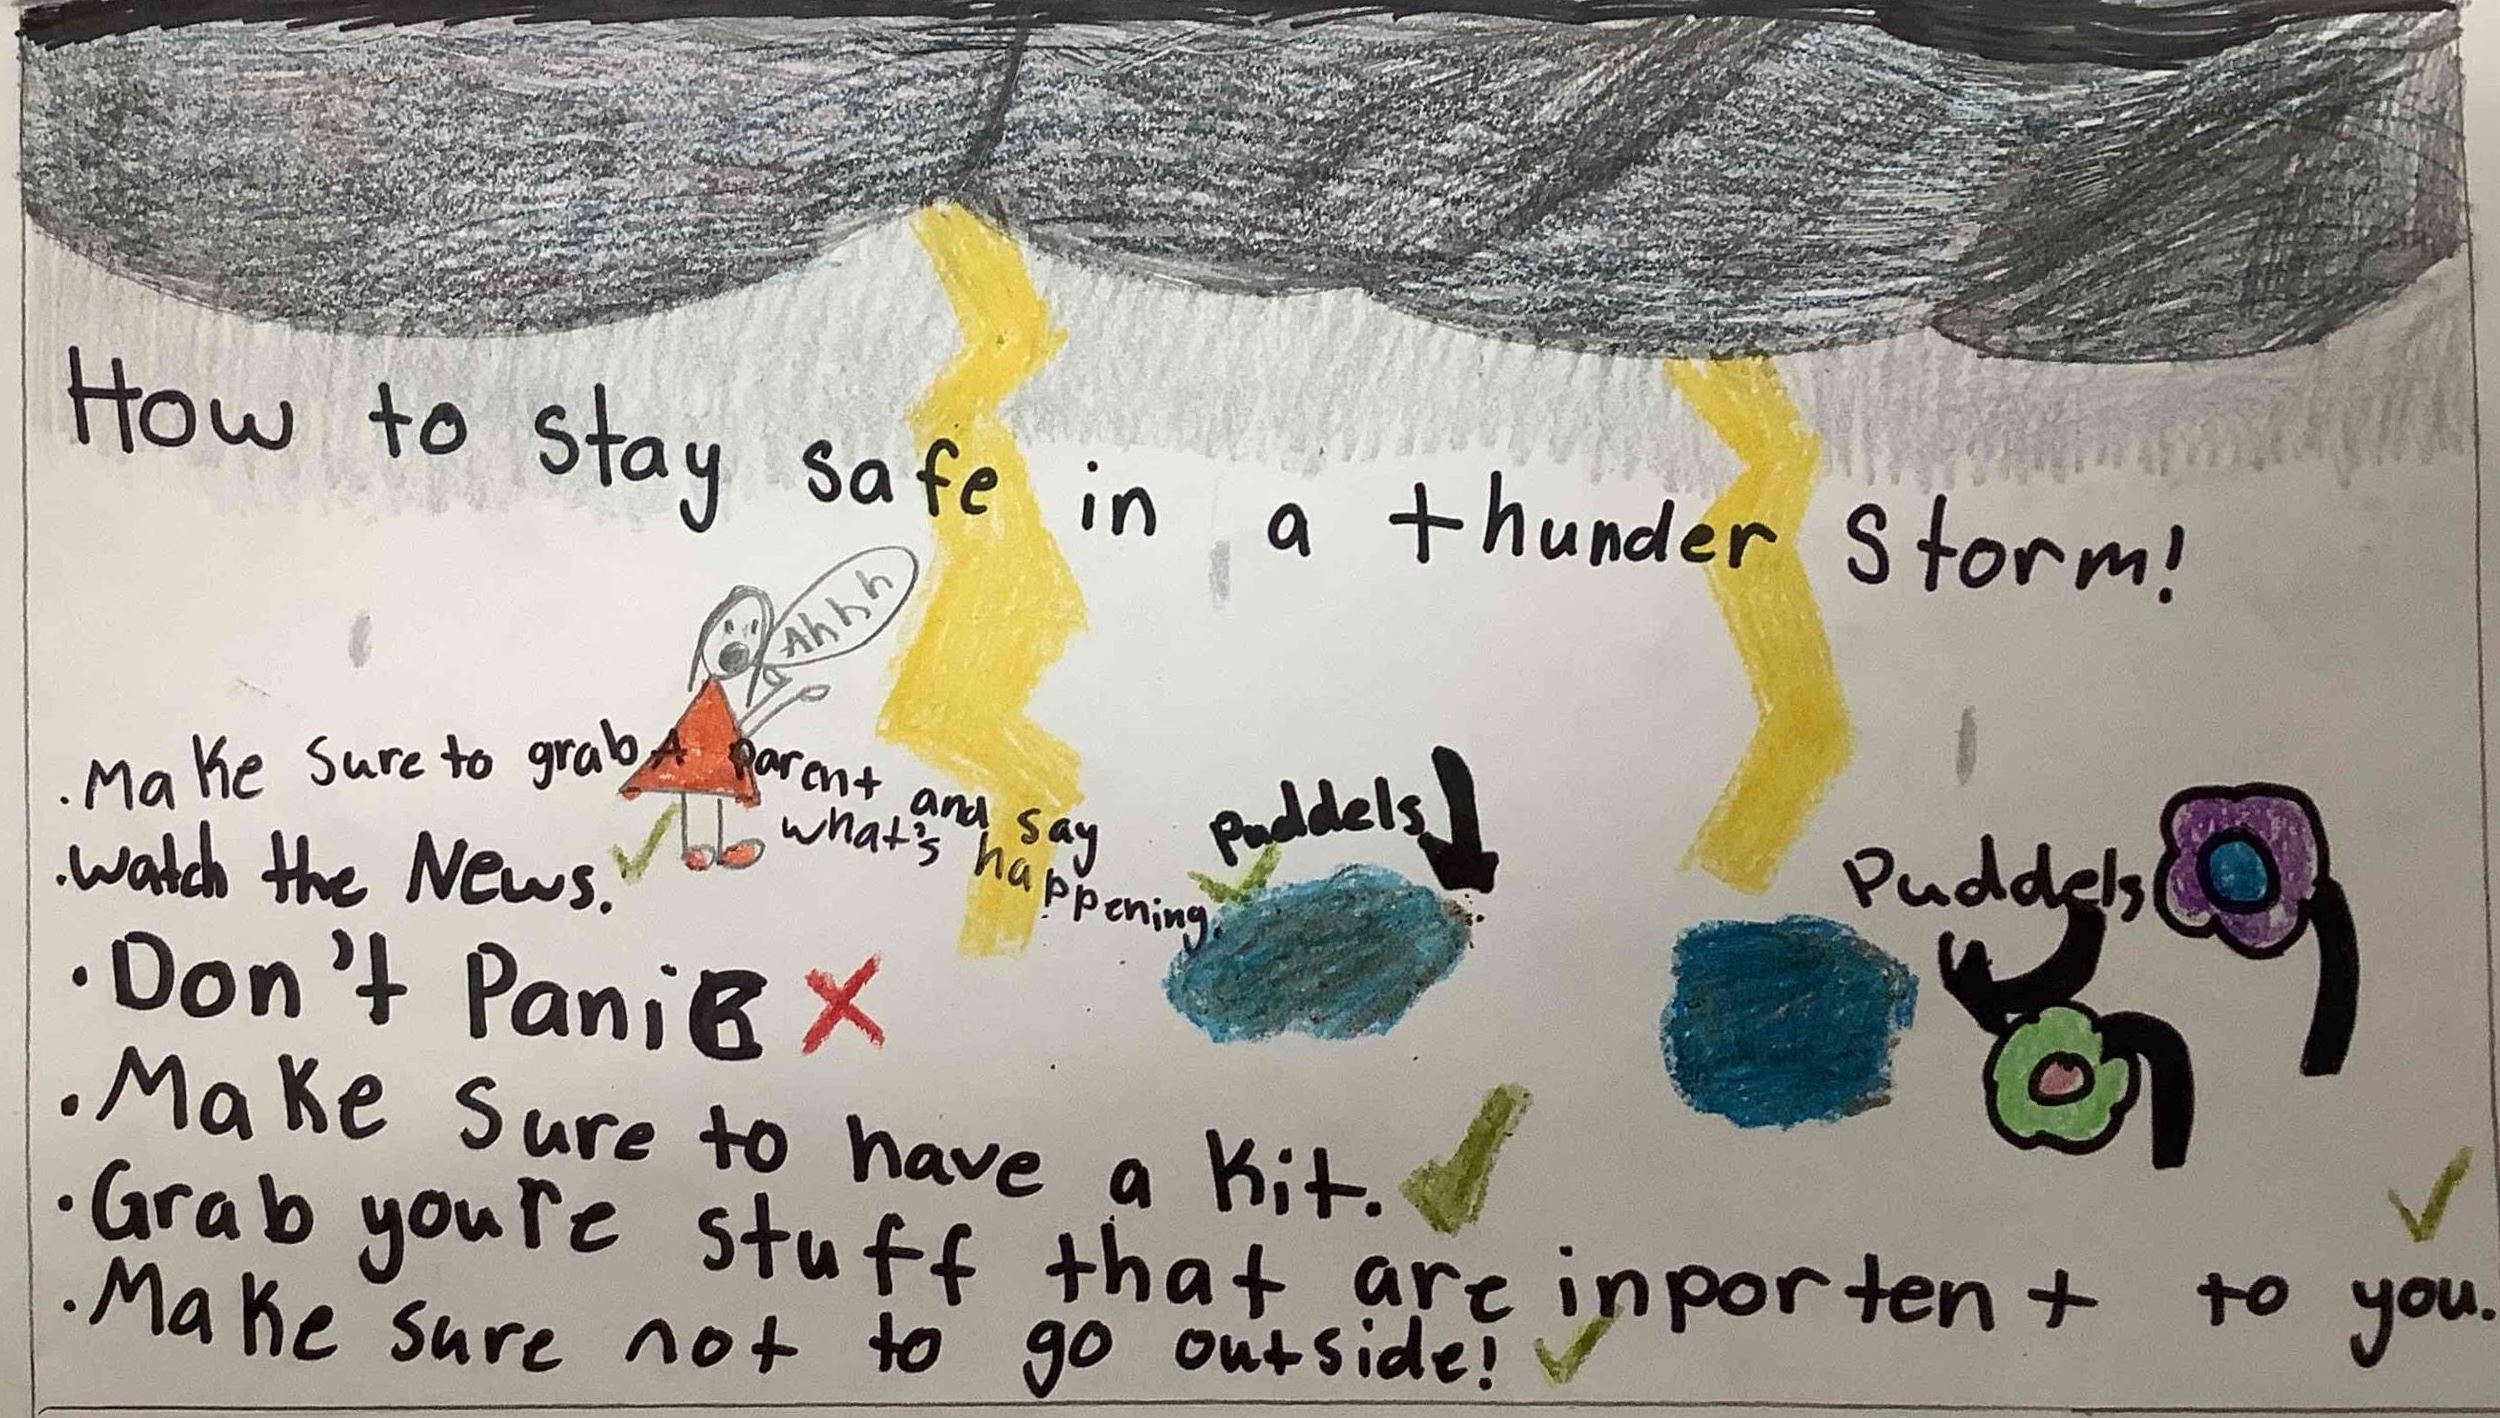 How to stay safe in a thunder storm!
Ahhh
. Make sure to grab A parent and say
what's happening.
. watch the News.
puddels
Puddels
. Don't Panic
. Make sure to have a kit.
. Grab you're stuff that are inportent to you.
. Make sure not to go outside!